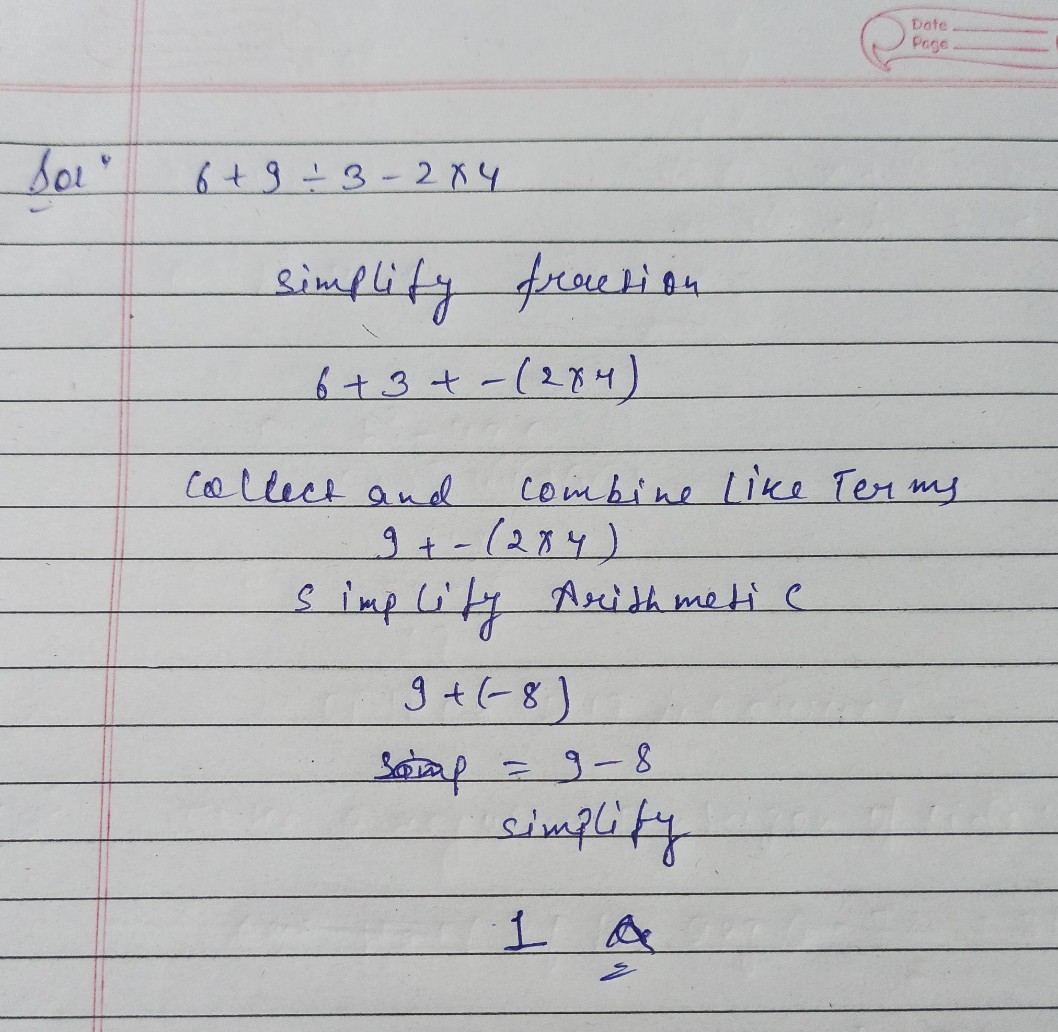 Date
Page
Sol" 6 + 9 ÷ 3 - 2 × 4
simplify fraction
6 + 3 + - (2 × 4)
Collect and combine Like Terms
9 + - (2 × 4)
simplify Arithmetic
9 + (-8)
= 9 - 8
simplify
1